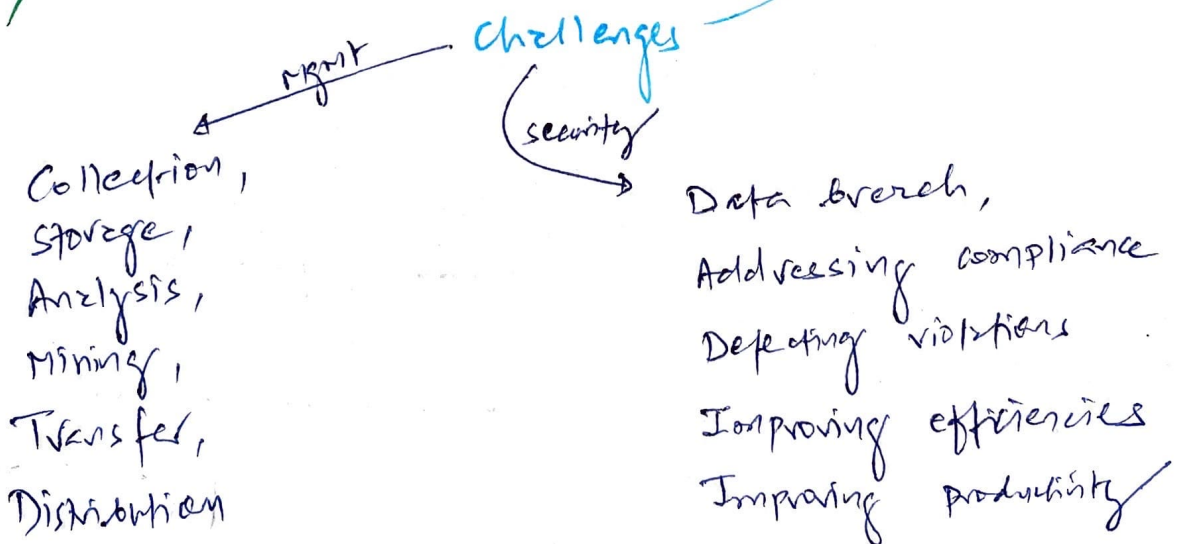 Challenges
mgmt
security
Collection,
Storage,
Analysis,
Mining,
Transfer,
Distribution
Data breach,
Addressing compliance
Detecting violations
Improving efficiencies
Improving productivity